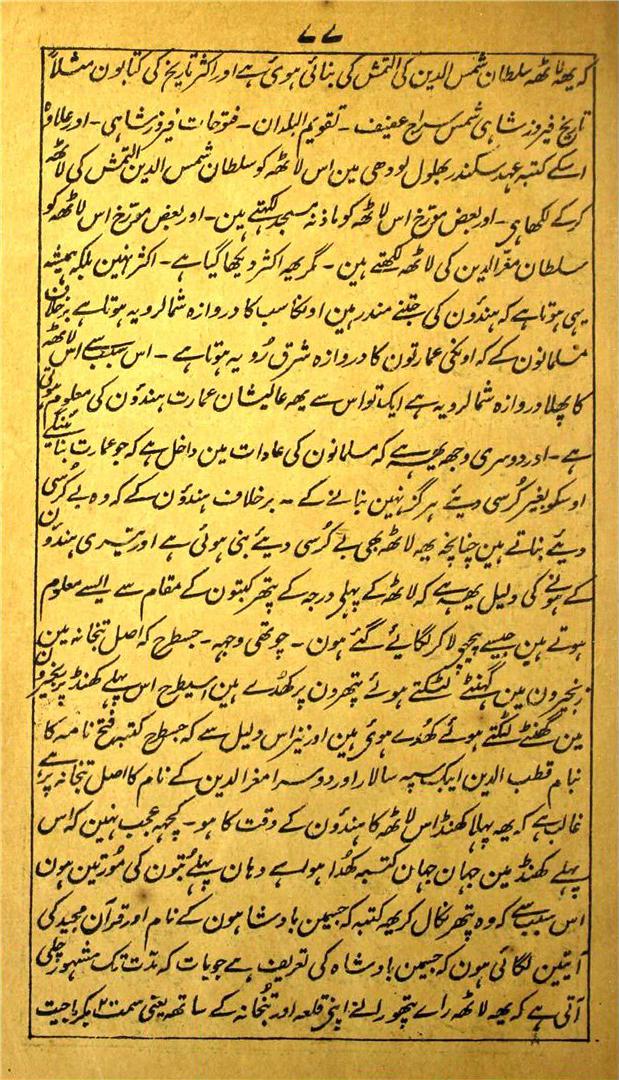 ۷۷
کہ یھہ لاٹھہ سلطان شمس الدین کی التمش کی بنائی ہوئی ہے اور اکثر تاریخ کی کتابون مثلاً
تاریخ فیروز شاہی شمس سراج عفیف ۔ تقویم البلدان ۔ فتوحات فیروز شاہی ۔ اور علاوہ
اسکے کتبہ عہد سکندر بھلول لودھی مین اس لاٹھہ کو سلطان شمس الدین التمش کی لاٹھہ
کرکے لکھا ہی ۔ اور بعض مورخ اس لاٹھہ کو ماذنہ مسجد لکھتے ہین ۔ اور بعض مورخ اس لاٹھہ کو
سلطان معز الدین کی لاٹھہ لکھتے ہین ۔ مگر یھہ اکثر دیکھا گیا ہے ۔ اکثر نہین بلکہ ہمیشہ
یہی ہوتا ہے کہ ہندؤن کی جتنے مندر ہین اونکا سب کا دروازہ شمالرویہ ہوتا ہے برخلاف
مسلمانون کے کہ اونکی عمارتون کا دروازہ شرق رُویہ ہوتا ہے ۔ اس سبب سے اس لاٹھہ
کا پھلا دروازہ شمالرویہ ہے ایک تو اس سے یھہ عالیشان عمارت ہندؤن کی معلوم ہوتی
ہے ۔ اور دوسری وجھہ یھہ ہے کہ مسلمانون کی عادات مین داخل ہے کہ جو عمارت بنائینگے
اوسکو بغیر کُرسی دیئے ہرگز نہین بنانے کے ۔ برخلاف ہندؤن کے کہ وہ بے کُرسی
دیئے بناتے ہین چنانچہ یھہ لاٹھہ بھی بے کُرسی دیئے بنی ہوئی ہے اور تیسری ہندؤن
کے ہونے کی دلیل یھہ ہے کہ لاٹھہ کے پہلی درجہ کے پتھر کتبون کے مقام سے ایسے معلوم
ہوتے ہین جیسے پیچھے لاکر لگائے گئے ہون ۔ چوتھی وجہہ ۔ جسطح کہ اصل بتخانہ مین
زنجیرون مین گہنٹے لٹکتے ہوئے پتھرون پر کھدے ہین اسیطح اس پہلے کھنڈ پر زنجیرون
مین گھنٹے لٹکتے ہوئے کھُدے ہوئی ہین اور نیز اس دلیل سے کہ جسطح کتبہ فتح نامہ کا
بنام قطب الدین ایبک سپہ سالار اور دوسرا معز الدین کے نام کا اصل بتخانہ پر ہے
غالب ہے کہ یھہ پہلا کھنڈ اس لاٹھہ کا ہندؤن کے وقت کا ہو ۔ کچھہ عجب نہین کہ اس
پہلے کھنڈ مین جہان جہان کتبہ کھُدا ہوا ہے وہان پہلے بُتون کی مُورتین ہون
اس سبب سے کہ وہ پتھر نکال کر یھہ کتبہ کہ جسمین بادشاہون کے نام اور قرآن مجید کی
آیتین لگائی ہون کہ جسمین بادشاہ کی تعریف ہے جو بات کہ مدّت تک مشہور چلی
آتی ہے کہ یھہ لاٹھہ راے پتھورا نے اپنی قلعہ اور بتُخانہ کے ساتھہ یعنی سمت ۲۰ بکرماجیت